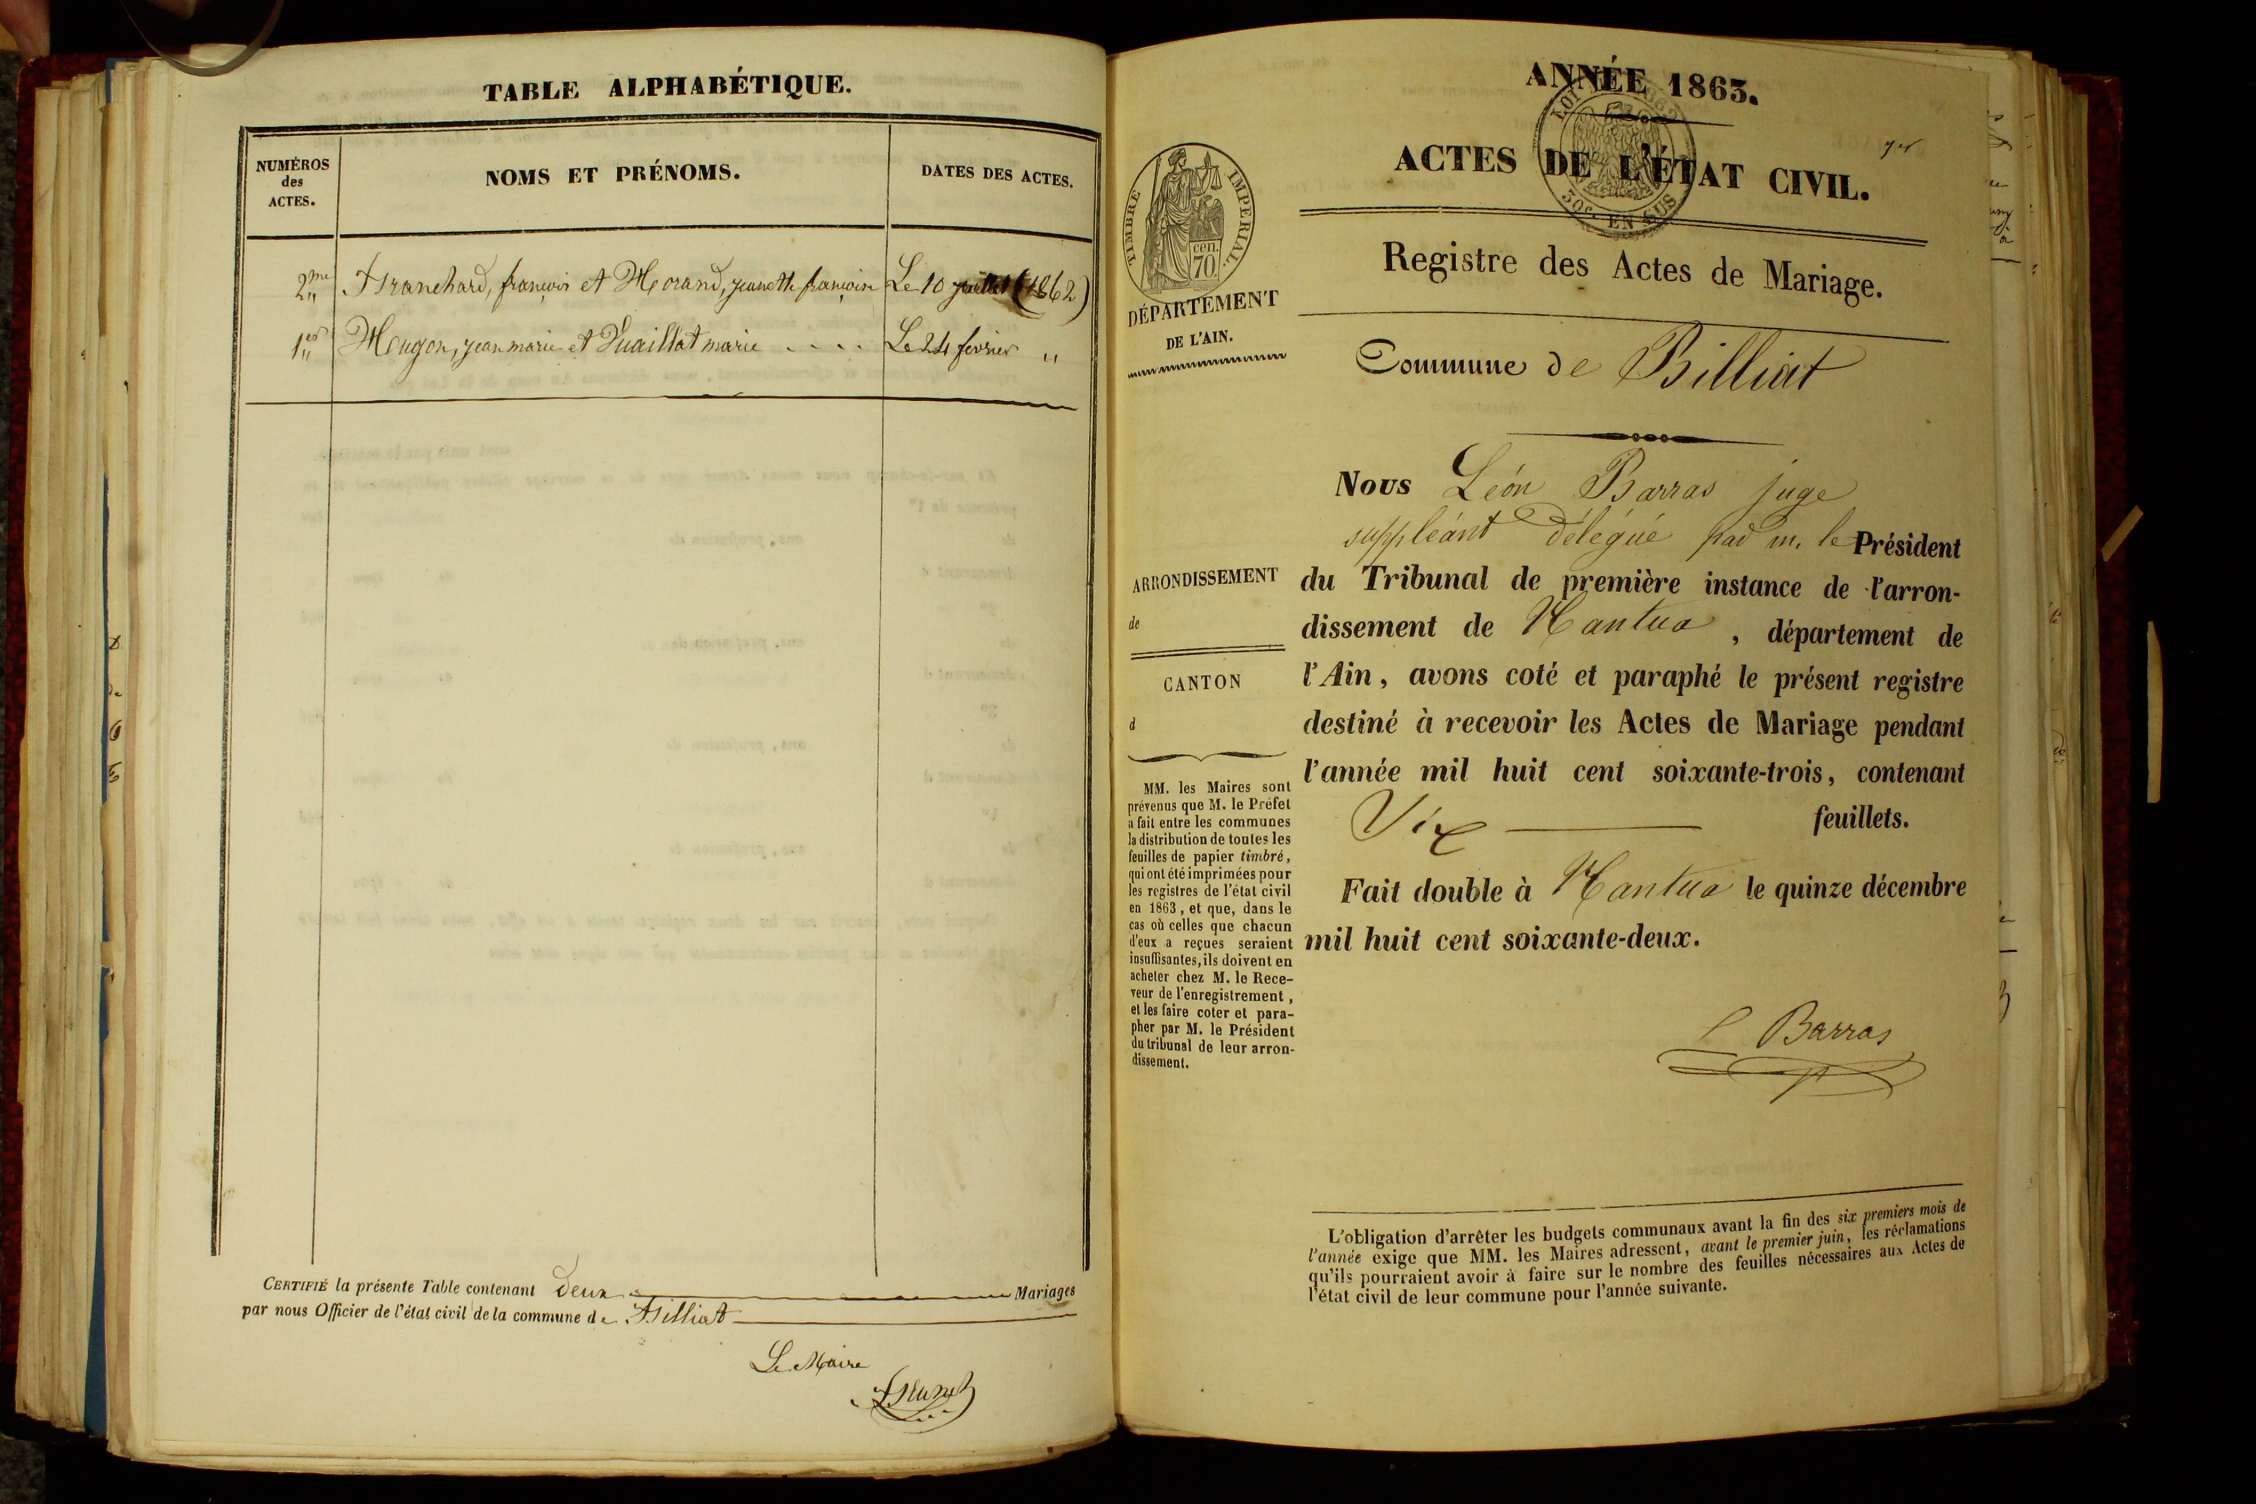 TABLE ALPHABÉTIQUE.
NUMÉROS
des
ACTES.
NOMS ET PRÉNOMS.
DATES DES ACTES.
2me Branchard, françois et Morand, jeanette françoise Le 10 juillet (1862)
1er Mougon, jean marie et Vuaillat marie . . . . Le 24 février "
CERTIFIÉ la présente Table contenant deux Mariages
par nous Officier de l'état civil de la commune de Billiat
Le Maire
ANNÉE 1863.
1er
ACTES DE L'ÉTAT CIVIL.
LOI
30c. EN SUS
TIMBRE IMPERIAL.
cen.
70
DÉPARTEMENT
DE L'AIN.
Registre des Actes de Mariage.
Commune de Billiat
Nous Léon Barras juge
suppléant délégué par m. le Président
du Tribunal de première instance de l'arron-
dissement de Nantua, département de
l'Ain, avons coté et paraphé le présent registre
destiné à recevoir les Actes de Mariage pendant
l'année mil huit cent soixante-trois, contenant
Six feuillets.
Fait double à Nantua le quinze décembre
mil huit cent soixante-deux.
L Barras
ARRONDISSEMENT
de
CANTON
d
MM. les Maires sont
prévenus que M. le Préfet
a fait entre les communes
la distribution de toutes les
feuilles de papier timbré,
qui ont été imprimées pour
les registres de l'état civil
en 1863, et que, dans le
cas où celles que chacun
d'eux a reçues seraient
insuffisantes, ils doivent en
acheter chez M. le Rece-
veur de l'enregistrement,
et les faire coter et para-
pher par M. le Président
du tribunal de leur arron-
dissement.
L'obligation d'arrêter les budgets communaux avant la fin des six premiers mois de
l'année exige que MM. les Maires adressent, avant le premier juin, les réclamations
qu'ils pourraient avoir à faire sur le nombre des feuilles nécessaires aux Actes de
l'état civil de leur commune pour l'année suivante.